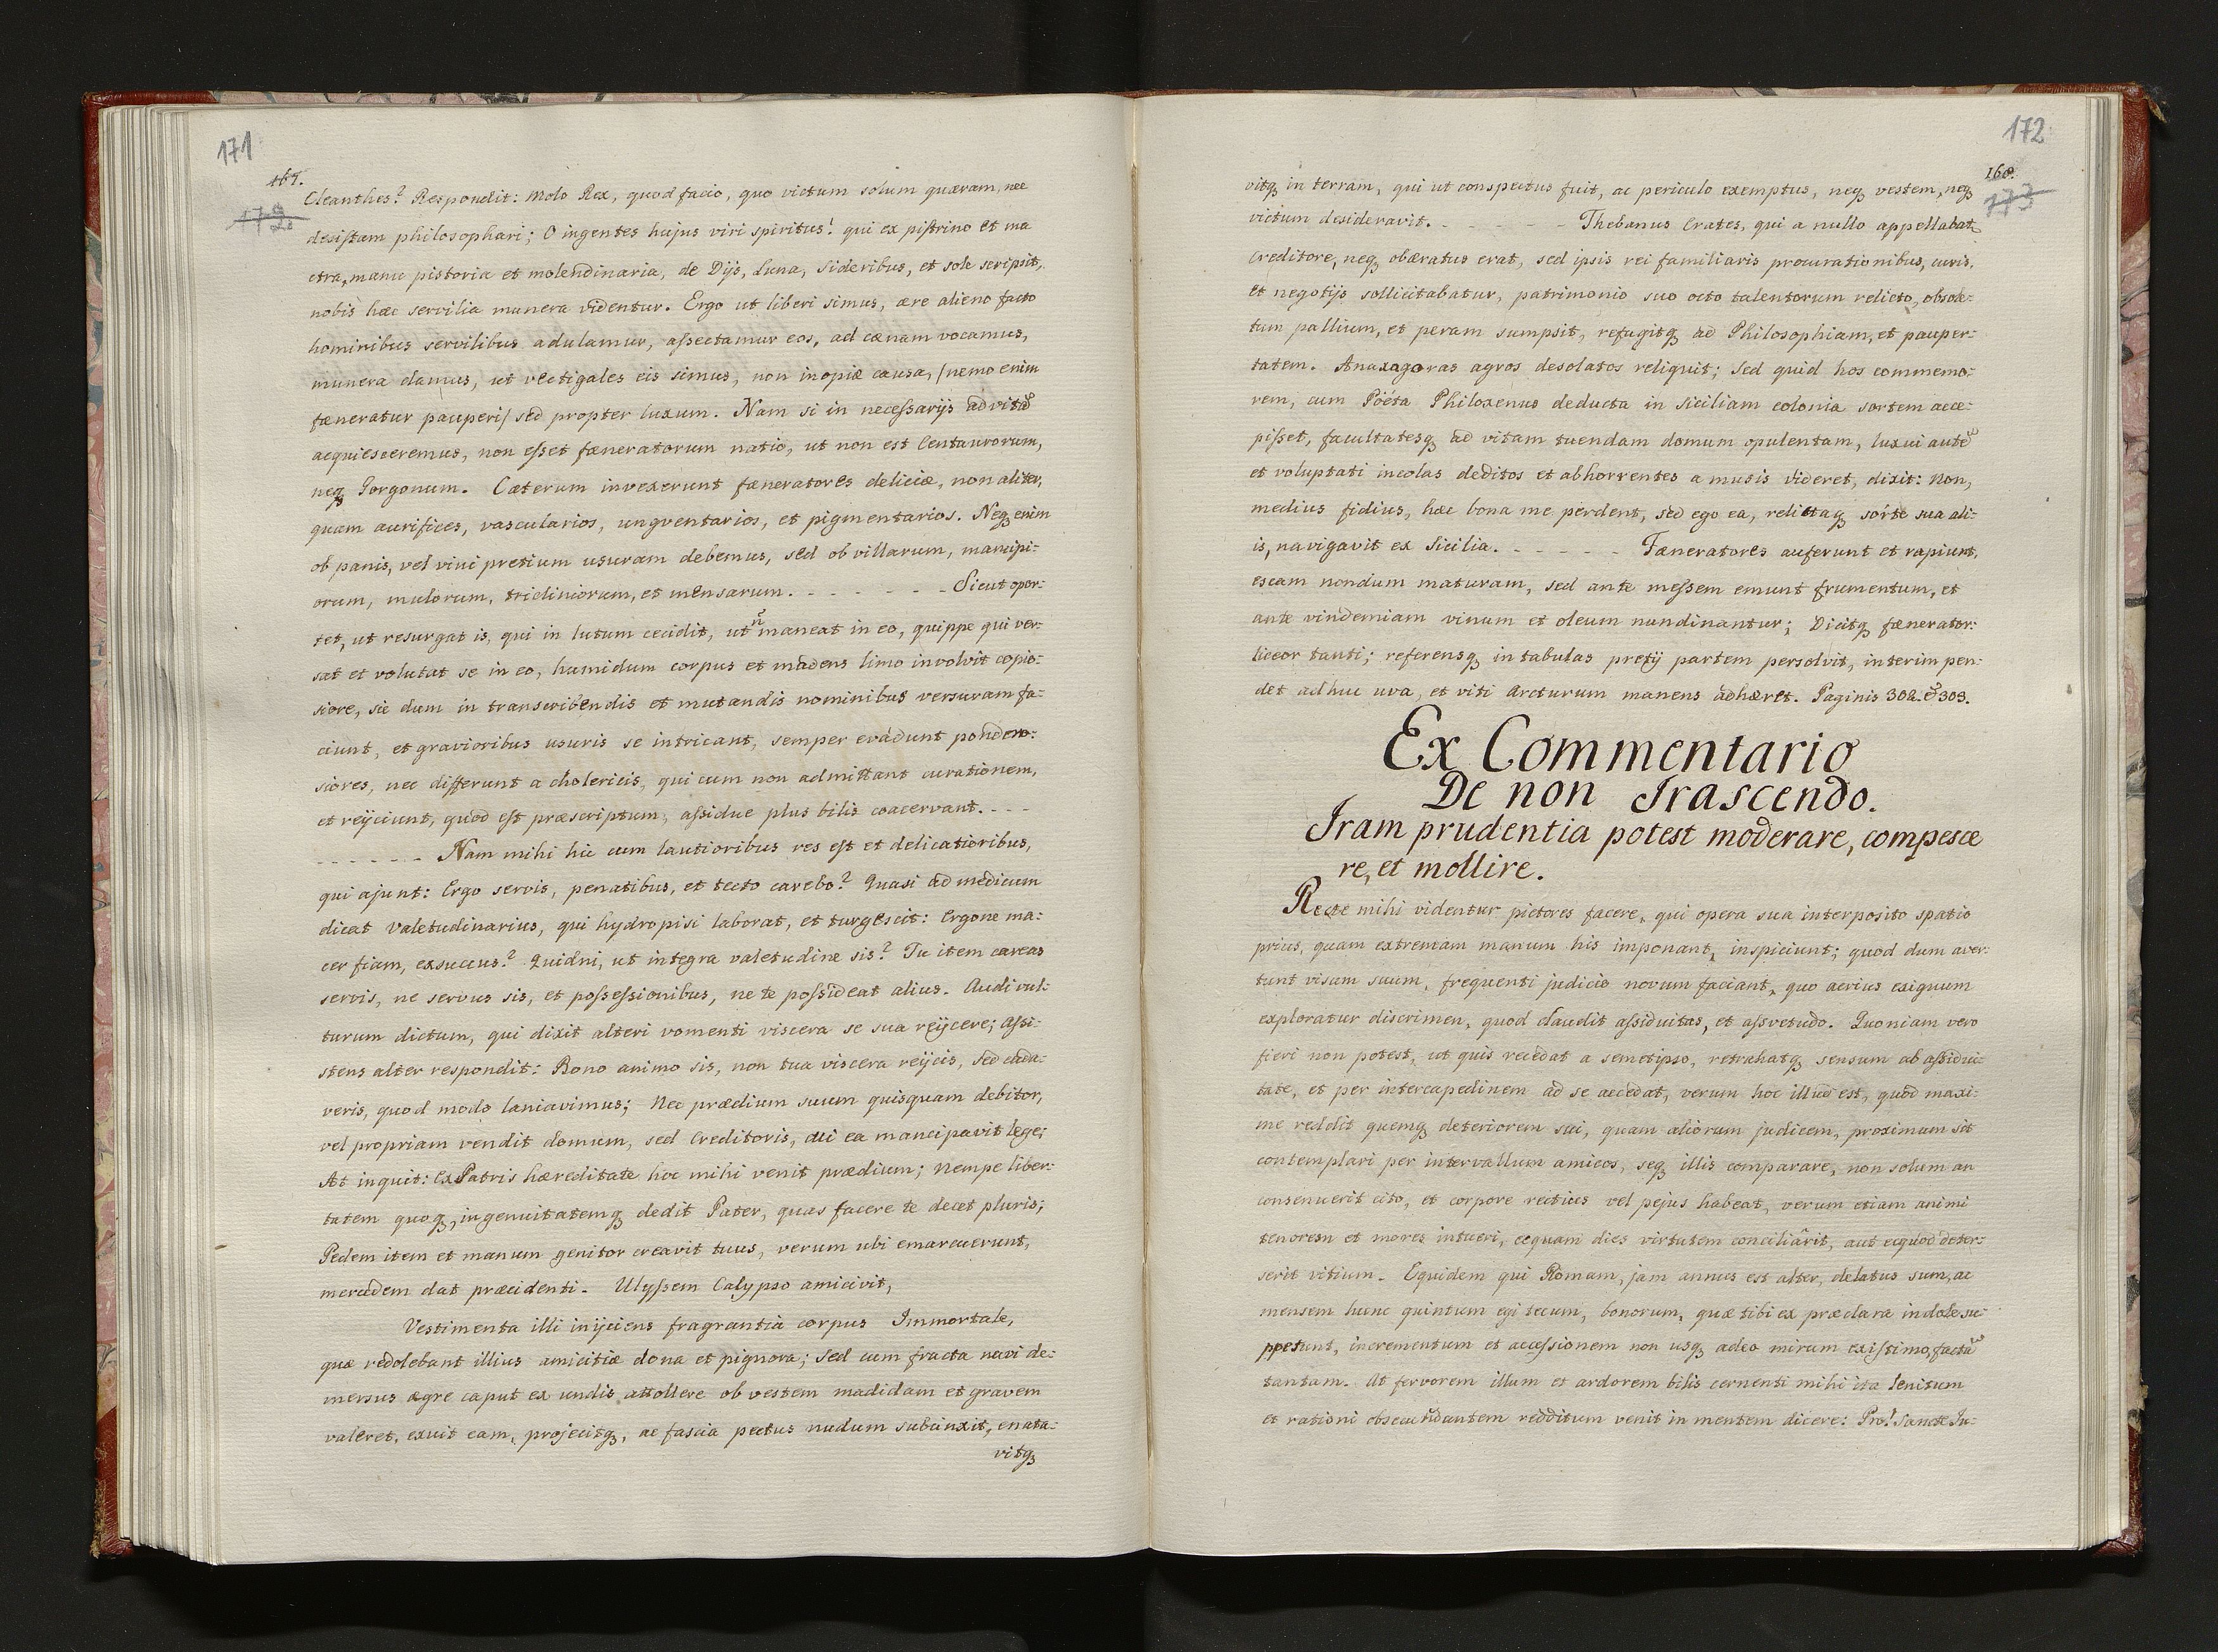 171
167.
172.
Cleanthes? Respondit: Molo Rex, quod facio, quo victum solum quæram, nec
desistam philosophari; O ingentes hujus viri spiritus! qui ex pistrino et ma
ctra, manu pistoria et molendinaria, de Dijs, Luna, Sideribus, et sole scripsit,
nobis hæc servilia munera videntur. Ergo ut liberi simus, ære alieno facto
hominibus servilibus adulamur, assectamur eos, ad cænam vocamus,
munera damus, ut vectigales eis simus, non inopiæ causa, /nemo enim
fæneratur pauperi/ sed propter luxum. Nam si in necessarijs ad vitã
acquiesceremus, non esset fæneratorum natio, ut non est Centaurorum,
neq Gorgonum. Cæterum invexerunt fæneratores deliciæ, non aliter,
quam aurifices, vascularios, ungventarios, et pigmentarios. Neq enim
ob panis, vel vini pretium usuram debemus, sed ob villarum, mancipi:
orum, mulorum, tricliniorum, et mensarum. - - - - - - - Sicut opor:
tet, ut resurgat is, qui in lutum cecidit, ut ñ maneat in eo, quippe qui ver:
sat et volutat se in eo, humidum corpus et madens limo involvit copio:
siore, sic dum in transcribendis et mutandis nominibus versuram fa:
ciunt, et gravioribus usuris se intricant, semper evadunt pondero:
siores, nec differunt a cholericis, qui cum non admittant curationem,
et reijciunt, quod est præscriptum, assidue plus bilis coacervant. - - -
- - - - - - Nam mihi hic cum lautioribus res est et delicatioribus,
qui ajunt: Ergo servis, penatibus, et tecto carebo? Quasi ad medicum
dicat valetudinarius, qui hydropisi laborat, et turgescit: Ergone ma:
cer fiam, exsuccus? Quidni, ut integra valetudine sis? Tu item careas
servis, ne servus sis, et possessionibus, ne te possideat alius. Audi vul:
turum dictum, qui dixit alteri vomenti viscera se sua reijcere; Assi:
stens alter respondit: Bono animo sis, non tua viscera reijcis, sed cada:
veris, quod modo laniavimus; Nec prædium suum quisquam debitor,
vel propriam vendit domum, sed Creditoris, cui ea mancipavit lege;
At inquit: Ex Patris hæreditate hoc mihi venit prædium; Nempe liber:
tatem quoq, ingenuitatemq dedit Pater, quas facere te decet pluris;
Pedem item et manum genitor creavit tuus, verum ubi emarcuerunt,
mercedem dat præcidenti. Ulyssem Calypso amicivit,
Vestimenta illi inijciens fragrantia corpus Immortale,
quæ redolebant illius amicitiæ dona et pignora; Sed cum fracta navi de:
mersus ægre caput ex undis attollere ob vestem madidam et gravem
valeret, exuit eam, projecitq, ac fascia pectus nudum subcinxit, enata:
vitq
172
168.
173
vitq in terram, qui ut conspectus fuit, ac periculo exemptus, neq vestem, neq
victum desideravit. - - - - - - Thebanus Crates, qui a nullo appellabat
Creditore, neq obæratus erat, sed ipsis rei familiaris procurationibus, curis,
et negotijs sollicitabatur, patrimonio suo octo talentorum relicto, obsole:
tum pallium, et peram sumpsit, refugitq ad Philosophiam, et pauper:
tatem. Anaxagoras agros desolatos reliquit; Sed quid hos commemo:
rem, cum Poëta Philoxenus deducta in Siciliam colonia sortem acce:
pisset, facultatesq ad vitam tuendam domum opulentam, luxui autẽ
et voluptati incolas deditos et abhorrentes a musis videret, dixit: Non,
medius fidius, hæc bona me perdent, sed ego ea, relictaq sorte sua ali:
is, navigavit ex Sicilia. - - - - - - Fæneratores auferunt et rapiunt,
escam nondum maturam, sed ante messem emunt frumentum, et
ante vindemiam vinum et oleum nundinantur; Dicitq fænerator:
liceor tanti; referensq in tabulas pretij partem persolvit, interim pen:
det adhuc uva, et viti Arcturum manens adhæret. Paginis 302. & 303.
Ex Commentario
De non Irascendo.
Iram prudentia potest moderare, compesce
re, et mollire.
Recte mihi videntur pictores facere, qui opera sua interposito spatio
prius, quam extremam manum his imponant, inspiciunt; quod dum aver:
tunt visum suum, frequenti judicio novum faciant, quo acrius exiguum
exploratur discrimen, quod claudit assiduitas, et assvetudo. Quoniam vero
fieri non potest, ut quis recedat a semetipso, retrahatq sensum ab assidui:
tate, et per intercapedinem ad se accedat, verum hoc illud est, quod maxi:
me reddit quemq deteriorem sui, quam aliorum judicem, proximum sit
contemplari per intervallum amicos, seq illis comparare, non solum an
consenuerit cito, et corpore rectius vel pejus habeat, verum etiam animi
tenorem et mores intueri, ecquam dies virtutem conciliârit, aut ecquod deter:
serit vitium. Equidem qui Romam, jam annus est alter, delatus sum, ac
mensem hunc quintum egi tecum, bonorum, quæ tibi ex præclara indole su:
ppetunt, incrementum et accessionem non usq adeo mirum existimo, factã
tantam. At fervorem illum et ardorem bilis cernenti mihi ita lenitum
et rationi obsecundantem redditum venit in mentem dicere: Pro! Sancte Ju: